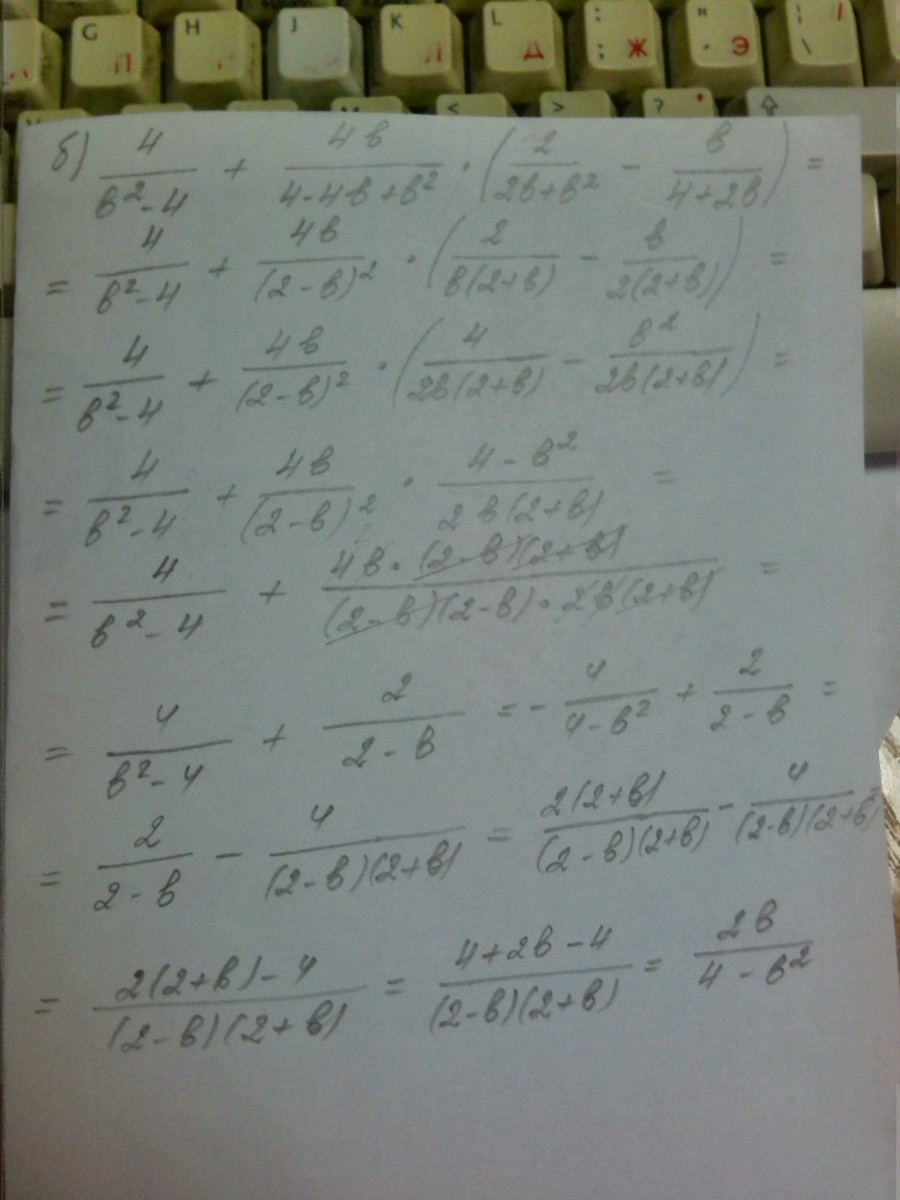 G П H J K Л L Д : ; Ж " ' Э \
< > ? ⇧
б) 4/(в²-4) + 4в/(4-4в+в²) · (2/(2в+в²) - в/(4+2в)) =
= 4/(в²-4) + 4в/(2-в)² · (2/(в(2+в)) - в/(2(2+в))) =
= 4/(в²-4) + 4в/(2-в)² · (4/(2в(2+в)) - в²/(2в(2+в))) =
= 4/(в²-4) + 4в/(2-в)² · (4-в²)/(2в(2+в)) =
= 4/(в²-4) + (4в·(2-в)(2+в))/((2-в)(2-в)·2в(2+в)) =
= 4/(в²-4) + 2/(2-в) = -4/(4-в²) + 2/(2-в) =
= 2/(2-в) - 4/((2-в)(2+в)) = 2(2+в)/((2-в)(2+в)) - 4/((2-в)(2+в)) =
= (2(2+в)-4)/((2-в)(2+в)) = (4+2в-4)/((2-в)(2+в)) = 2в/(4-в²)